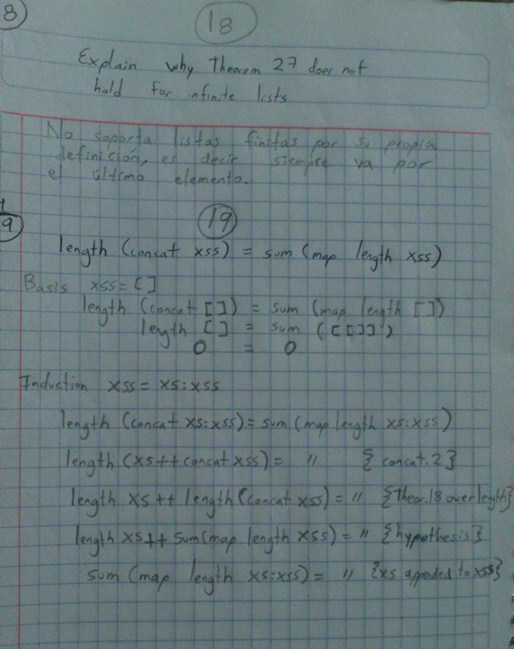 8
18
Explain why Theorem 27 does not
hold for infinite lists
No soporta listas finitas por su propia
definición, es decir siempre va por
el último elemento.
9
19
length (concat xss) = sum (map length xss)
Basis xss = []
length (concat []) = sum (map length [])
length [] = sum ([[]])
0 = 0
Induction xss = xs:xss
length (concat xs:xss) = sum (map length xs:xss)
length (xs ++ concat xss) = " {concat.2}
length xs ++ length (concat xss) = " {Theor.18 over length}
length xs ++ sum (map length xss) = " {hypothesis}
sum (map length xs:xss) = " {xs appended to xss}